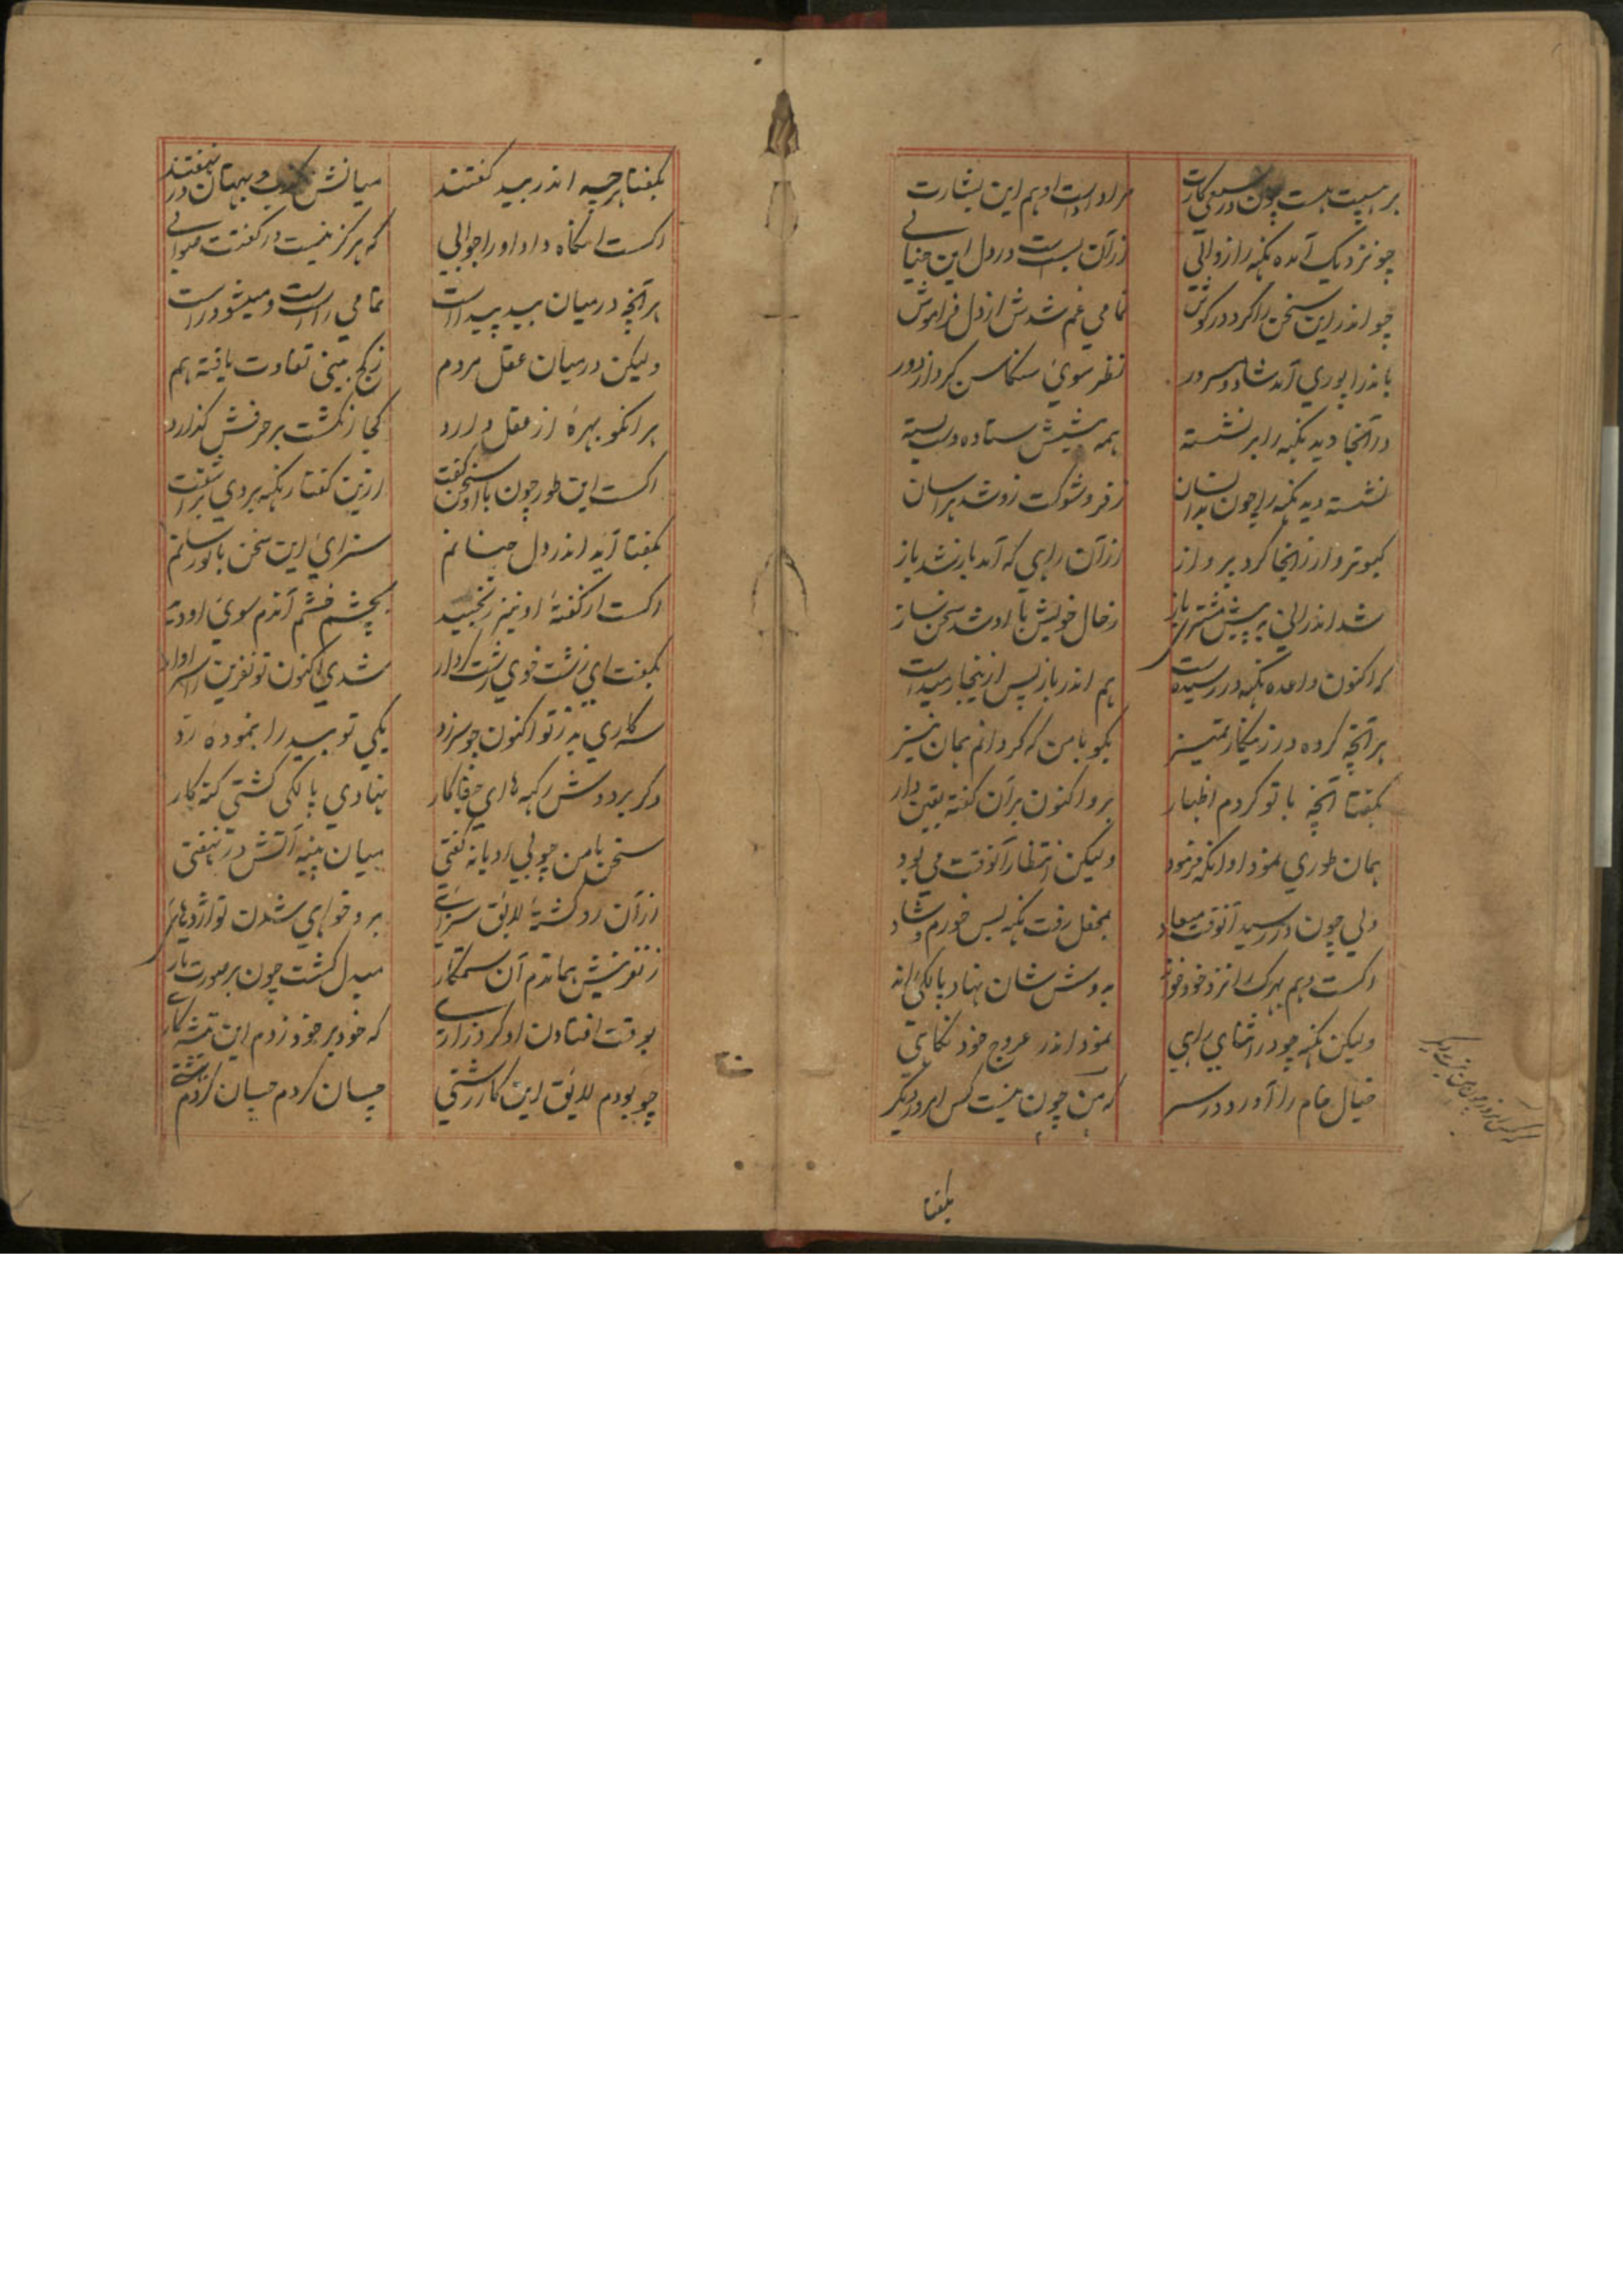 بر هیبت هست چون در سعی کارت مراد است او هم این بشارت
چو نزدیک آمده نکهه را زوالی ازآن بست در دل این خیالی
چو اندر این سخن را کرد در گوش تمامی غم شدش از دل فراموش
باندرا پوری آمد شاد و مسرور نظر سوی سنکاسن کرد از دور
در آنجا دید نکهه را بر نشسته همه پیشش ستاده دست بسته
نشسته دید نکهه را چون بدانسان ز فر و شوکت او شد هراسان
کبوتروار زانجا کرد پرواز ازآن راهی که آمد باز شد باز
شد اندرانی به پیش مشتری باز ز حال خویش با او شد سخن ساز
که اکنون واعده نکهه در رسیده است هم اندر باز پس از بیجا رمیده است
هر آنچه کرده در زینکار تمیز بکو با من که گردانم همان نیز
بگفتا آنچه با تو کردم اظهار برو اکنون برآن گفته یقین دار
همان طوری نمود او وانکه فرمود ولیکن انتظار آنوقت می بود
ولی چون در رسید آنوقت میعاد بمحفل رفت نکهه بس خورم و شاد
اکست و هم بهرک را نزد خود خواند به دوش شان نهاد پالکی راند
ولیکن نکهه چو در اثنای راهی نمود اندر عروج خود نگاهی
خیال خام را آورد در سر که من چون نیست کس امروز دیگر
بگفتا
بگفتا هرچه اندر بید گفتند میانش کذب و بهتان در نهفتند
اکست آنگاه داد او را جوابی که هرگز نیست در گفتت صوابی
هر آنچه در میان بید پیداست تمامی راست است و میشود راست
ولیکن در میان عقل مردم ز کج بینی تفاوت یافته هم
هر انکو بهرهٔ از عقل دارد کجا انگشت بر حرفش گذارد
اکست این طور چون با او سخن گفت ازین گفتار نکهه بر وی برآشفت
بگفتا آید اندر دل چنانم سزای این سخن با تو رسانم
اکست از گفتهٔ او نیز رنجید بچشم خشم آندم سوی او دید
بگفت ای زشت خوی زشت کردار شدی اکنون تو نفرین را سزاوار
سه کاری بد ز تو اکنون چو سر زد یکی تو بید را بنمودهٔ رد
دگر بر دوش رکهه‌های جفاکار نهادی پالکی گشتی گنه کار
سخن با من چو بی ادبانه گفتی میان پنبه آتش در نهفتی
ازآن رو گشتهٔ لایق سزای برو خواهی شدن تو اژدهای
ز نفرینش هماندم آن ستمکار مبدل گشت چون بر صورت مار
بوقت افتادن او کرد زاری که خود بر خود زدم این تیشه کاری
چو بودم لایق این کار زشتی چسان کردم چسان کردم